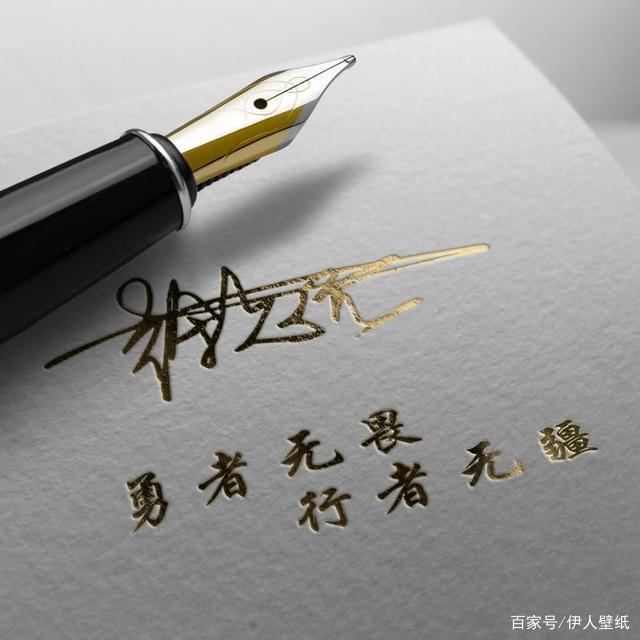 勇者无畏
行者无疆
百家号/伊人壁纸